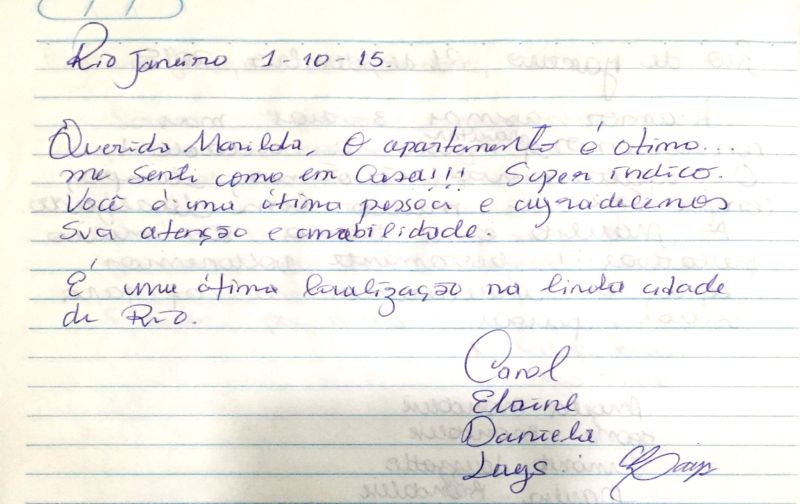 Rio Janeiro 1-10-15.
Querida Marilda, O apartamento é otimo...
me senti como em Casa!!! Super indico.
Você é uma ótima pessoa e agradecemos
sua atenção e amabilidade.
É uma ótima localização na linda cidade
de Rio.
Carol
Elaine
Daniela
Lays